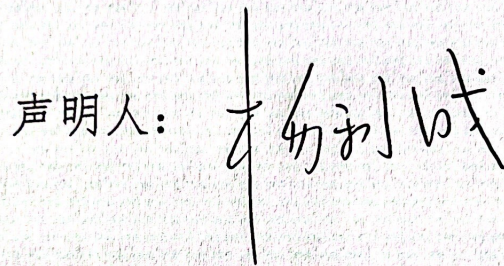 声明人：杨利成